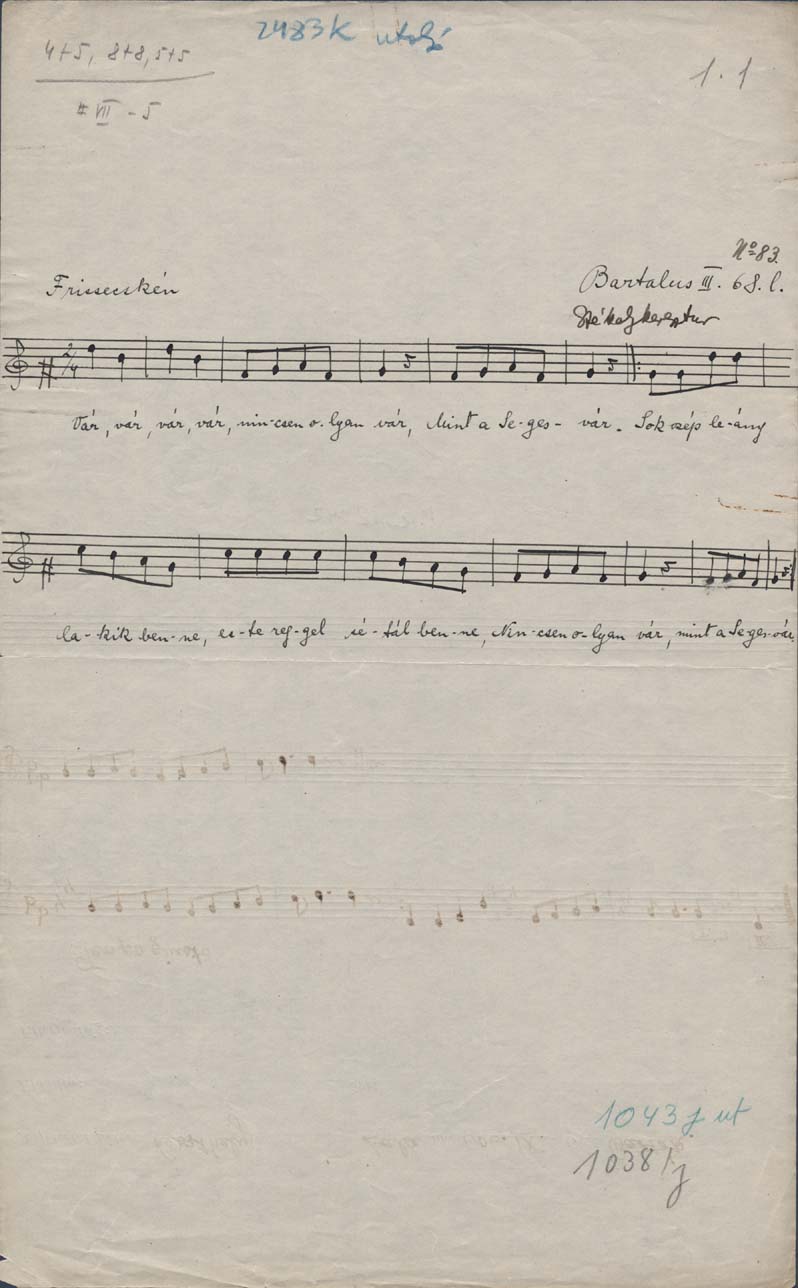 2483K utolsó
4+5, 8+8, 5+5
1.1
# VII - 5
Nº 83.
Frissecskén
Bartalus III. 68. l.
Székelykeresztur
2/4
Vár, vár, vár, vár, nin-csen o-lyan vár, Mint a Se-ges- vár. Sok szép le-ány
la-kik ben-ne, es-te reg-gel sé-tál ben-ne, Nin-csen o-lyan vár, mint a Se-ges-vár.
1043 j ut
1038/j